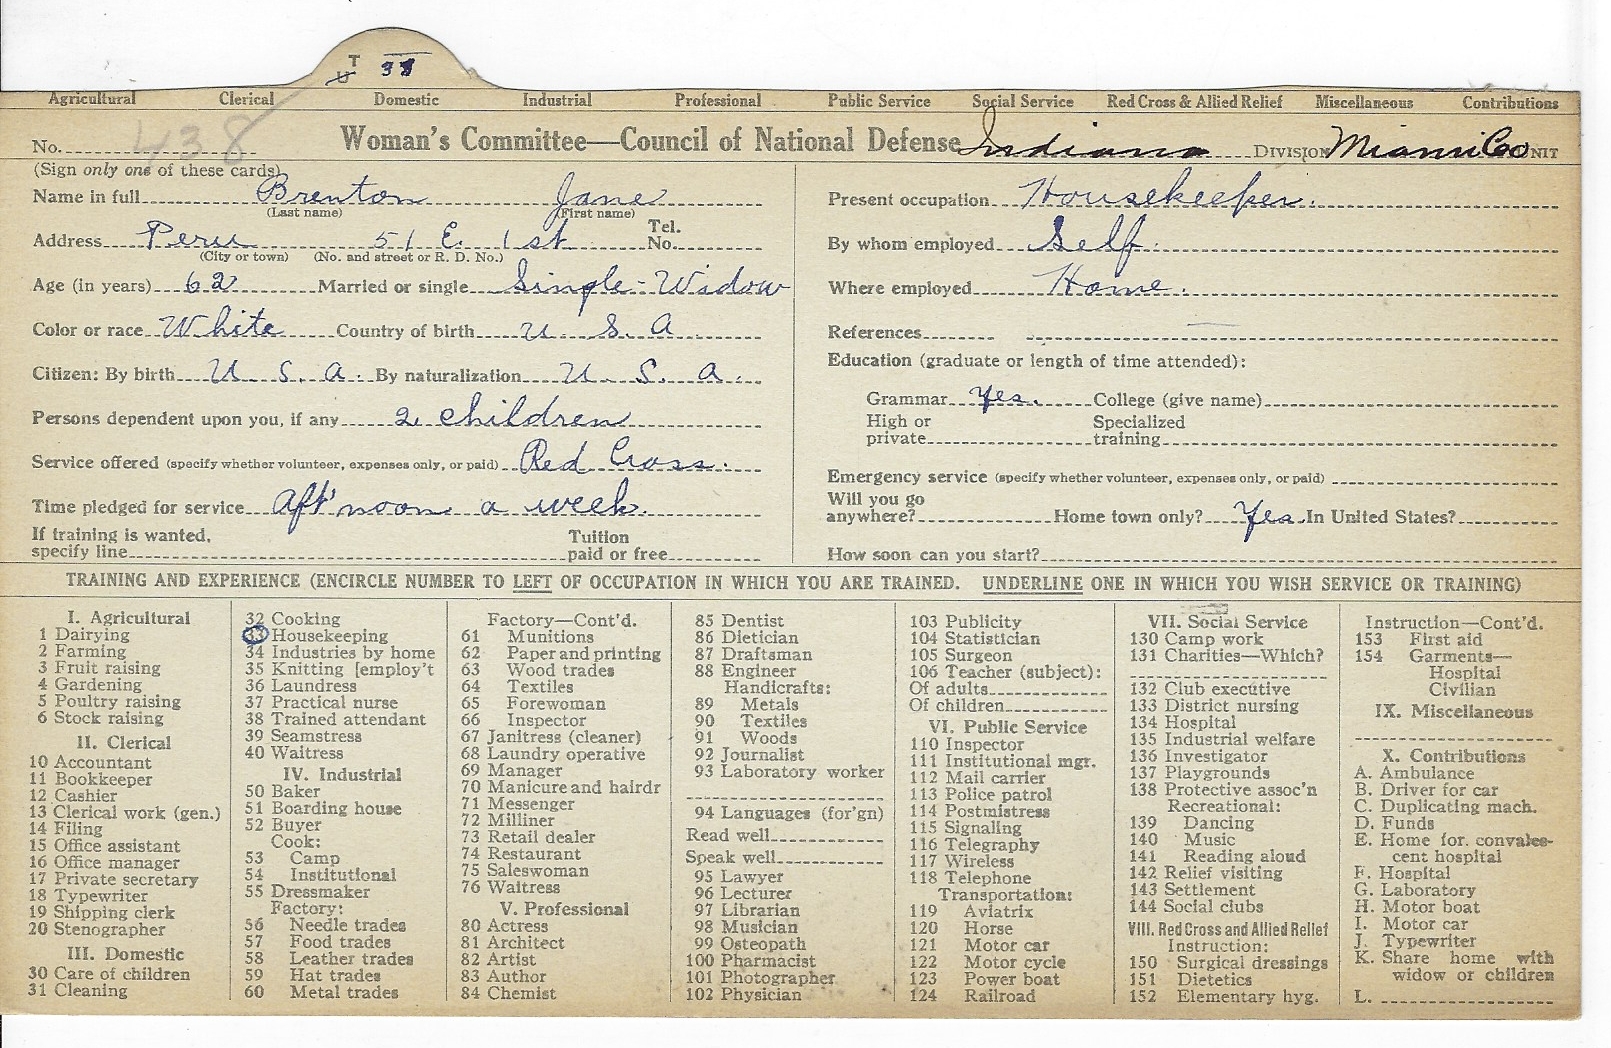 T
U 38
Agricultural Clerical Domestic Industrial Professional Public Service Social Service Red Cross & Allied Relief Miscellaneous Contributions
No. 438 Woman's Committee—Council of National Defense Indiana DIVISION Miami Co UNIT
(Sign only one of these cards)
Name in full Brenton Jane
(Last name) (First name)
Address Peru 51 E. 1st Tel. No.
(City or town) (No. and street or R. D. No.)
Age (in years) 62 Married or single Single - Widow
Color or race White Country of birth U. S. A.
Citizen: By birth U. S. A. By naturalization U. S. A.
Persons dependent upon you, if any 2 children
Service offered (specify whether volunteer, expenses only, or paid) Red Cross.
Time pledged for service Aft'noon a week.
If training is wanted, Tuition
specify line paid or free
Present occupation Housekeeper.
By whom employed Self.
Where employed Home.
References
Education (graduate or length of time attended):
Grammar Yes. College (give name)
High or Specialized
private training
Emergency service (specify whether volunteer, expenses only, or paid)
Will you go
anywhere? Home town only? Yes In United States?
How soon can you start?
TRAINING AND EXPERIENCE (ENCIRCLE NUMBER TO LEFT OF OCCUPATION IN WHICH YOU ARE TRAINED. UNDERLINE ONE IN WHICH YOU WISH SERVICE OR TRAINING)
I. Agricultural
1 Dairying
2 Farming
3 Fruit raising
4 Gardening
5 Poultry raising
6 Stock raising
II. Clerical
10 Accountant
11 Bookkeeper
12 Cashier
13 Clerical work (gen.)
14 Filing
15 Office assistant
16 Office manager
17 Private secretary
18 Typewriter
19 Shipping clerk
20 Stenographer
III. Domestic
30 Care of children
31 Cleaning
32 Cooking
33 Housekeeping
34 Industries by home
35 Knitting [employ't
36 Laundress
37 Practical nurse
38 Trained attendant
39 Seamstress
40 Waitress
IV. Industrial
50 Baker
51 Boarding house
52 Buyer
Cook:
53 Camp
54 Institutional
55 Dressmaker
Factory:
56 Needle trades
57 Food trades
58 Leather trades
59 Hat trades
60 Metal trades
Factory—Cont'd.
61 Munitions
62 Paper and printing
63 Wood trades
64 Textiles
65 Forewoman
66 Inspector
67 Janitress (cleaner)
68 Laundry operative
69 Manager
70 Manicure and hairdr
71 Messenger
72 Milliner
73 Retail dealer
74 Restaurant
75 Saleswoman
76 Waitress
V. Professional
80 Actress
81 Architect
82 Artist
83 Author
84 Chemist
85 Dentist
86 Dietician
87 Draftsman
88 Engineer
Handicrafts:
89 Metals
90 Textiles
91 Woods
92 Journalist
93 Laboratory worker
94 Languages (for'gn)
Read well
Speak well
95 Lawyer
96 Lecturer
97 Librarian
98 Musician
99 Osteopath
100 Pharmacist
101 Photographer
102 Physician
103 Publicity
104 Statistician
105 Surgeon
106 Teacher (subject):
Of adults
Of children
VI. Public Service
110 Inspector
111 Institutional mgr.
112 Mail carrier
113 Police patrol
114 Postmistress
115 Signaling
116 Telegraphy
117 Wireless
118 Telephone
Transportation:
119 Aviatrix
120 Horse
121 Motor car
122 Motor cycle
123 Power boat
124 Railroad
VII. Social Service
130 Camp work
131 Charities—Which?
132 Club executive
133 District nursing
134 Hospital
135 Industrial welfare
136 Investigator
137 Playgrounds
138 Protective assoc'n
Recreational:
139 Dancing
140 Music
141 Reading aloud
142 Relief visiting
143 Settlement
144 Social clubs
VIII. Red Cross and Allied Relief
Instruction:
150 Surgical dressings
151 Dietetics
152 Elementary hyg.
Instruction—Cont'd.
153 First aid
154 Garments—
Hospital
Civilian
IX. Miscellaneous
X. Contributions
A. Ambulance
B. Driver for car
C. Duplicating mach.
D. Funds
E. Home for. convales-
cent hospital
F. Hospital
G. Laboratory
H. Motor boat
I. Motor car
J. Typewriter
K. Share home with
widow or children
L.